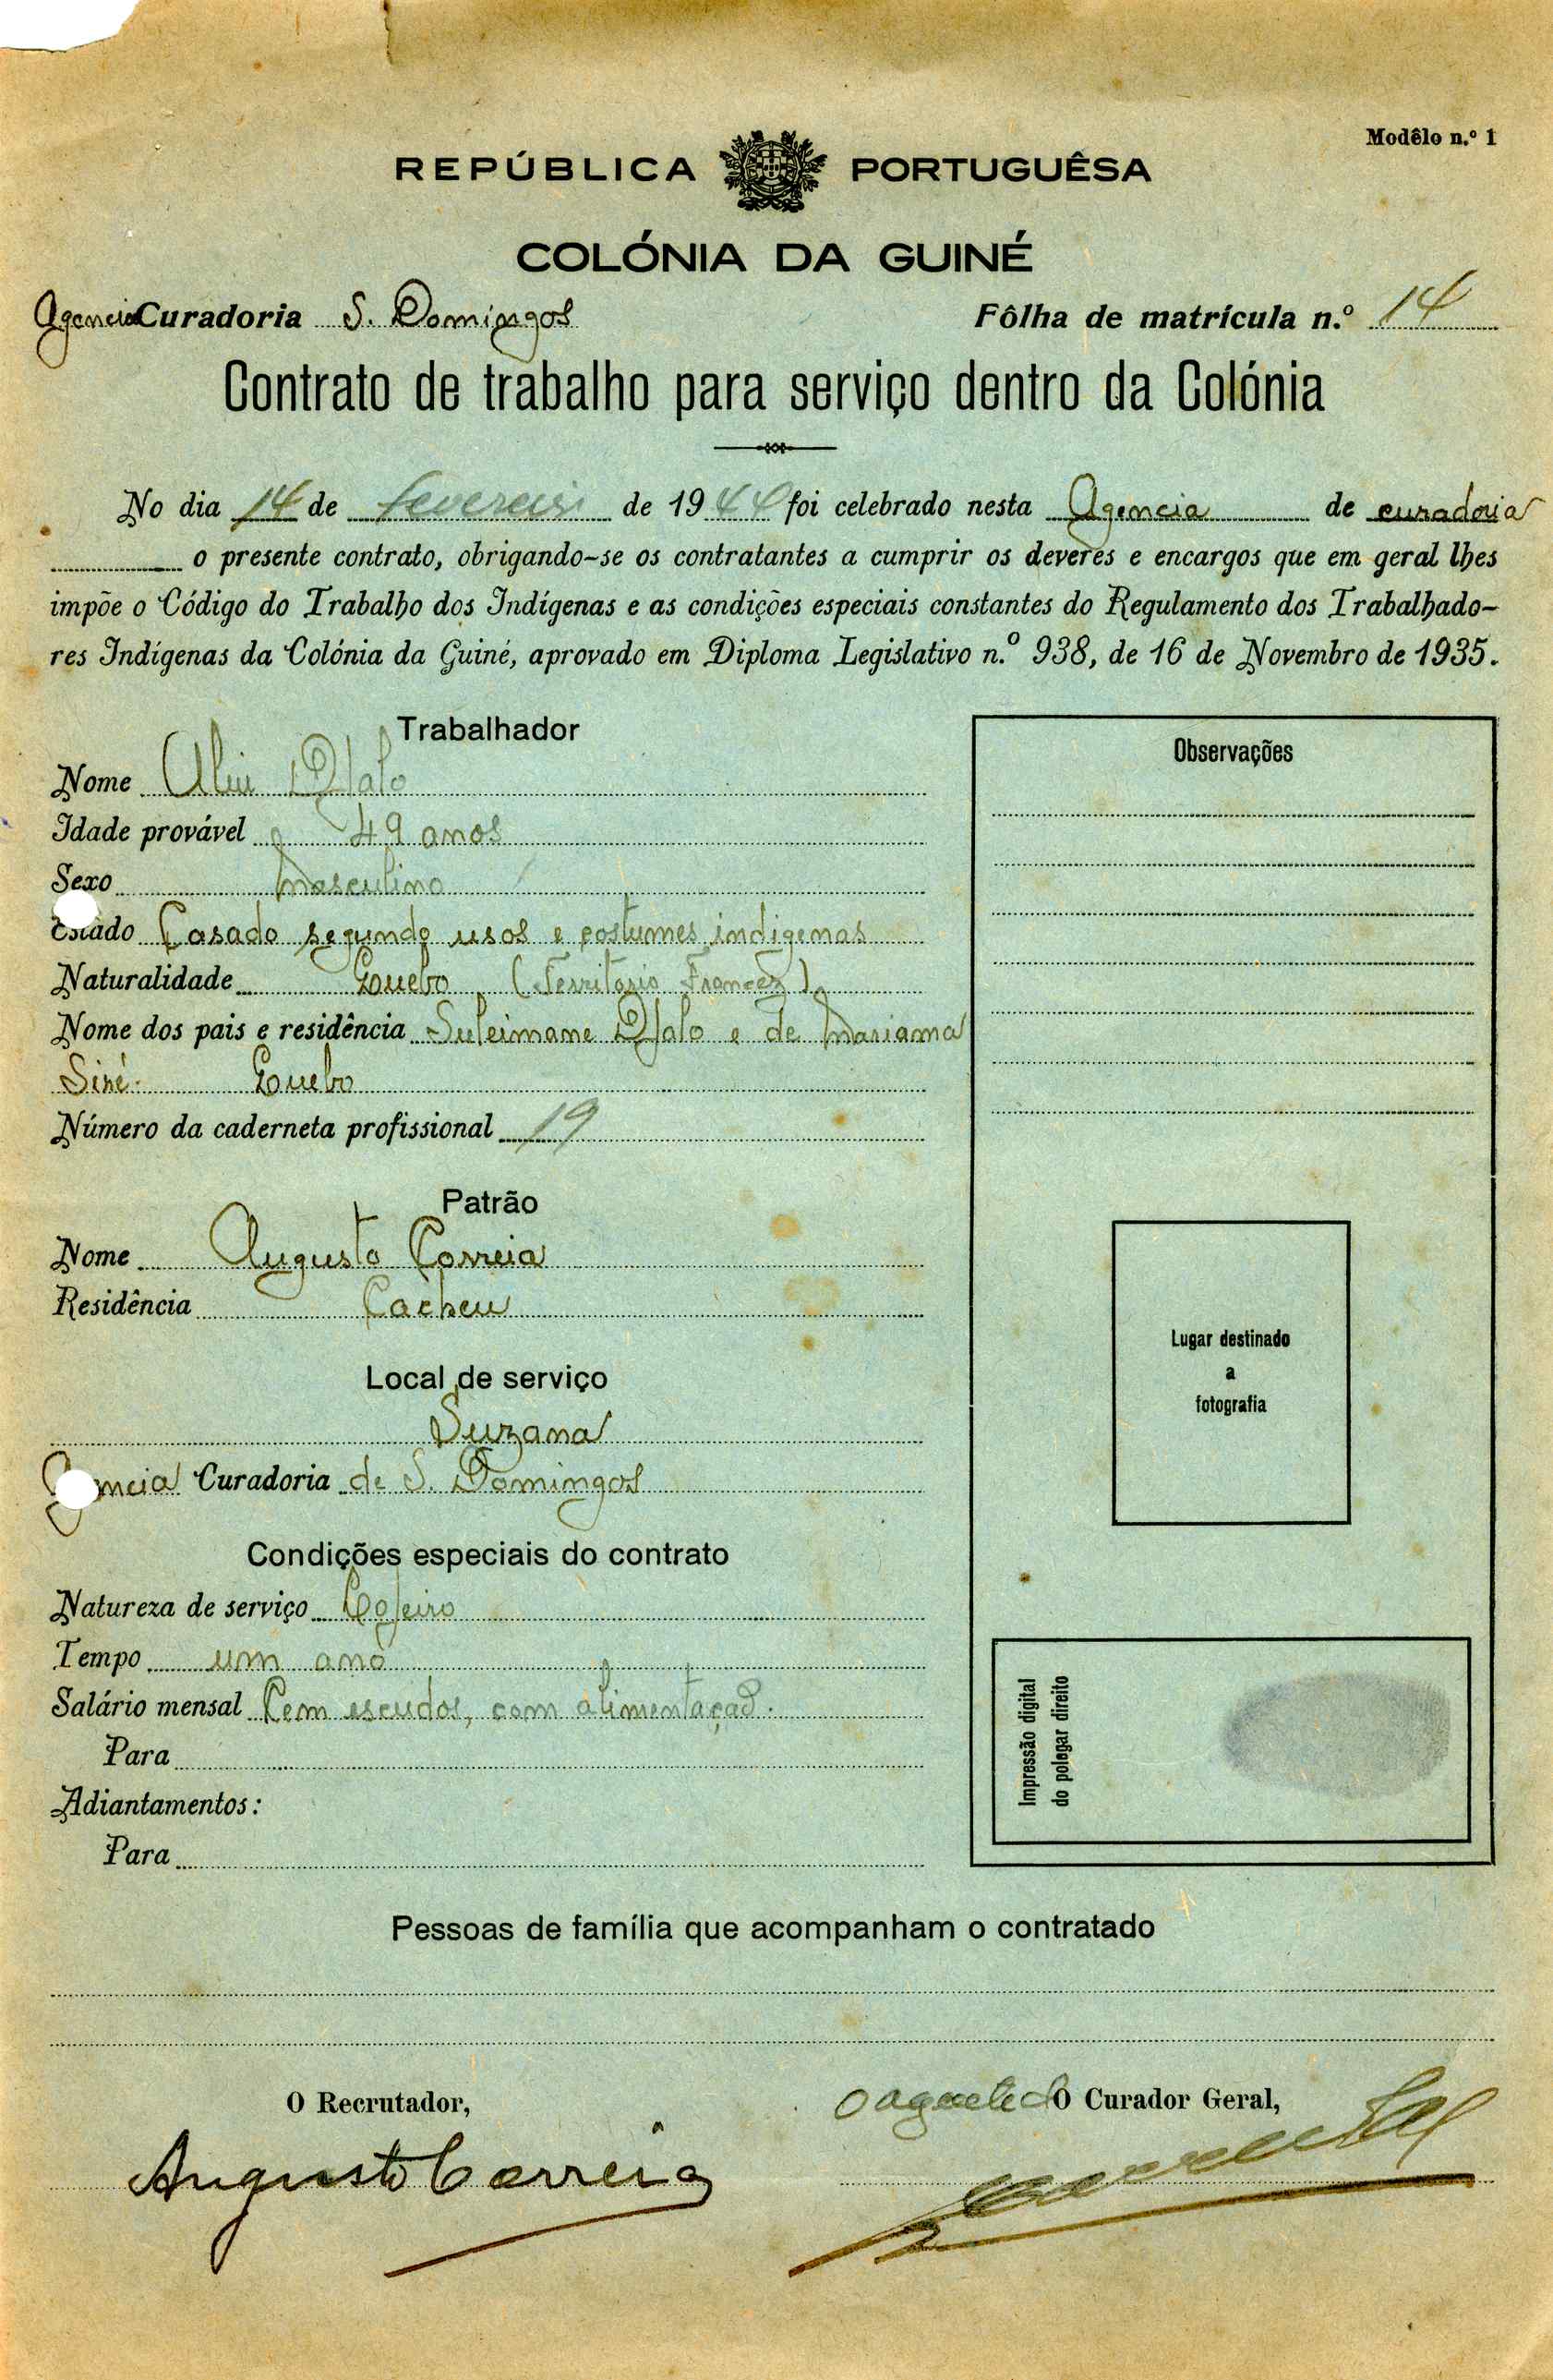 Modêlo n.º 1
REPÚBLICA PORTUGUÊSA
COLÓNIA DA GUINÉ
Agencia Curadoria S. Domingos Fôlha de matrícula n.º 14
Contrato de trabalho para serviço dentro da Colónia
No dia 14 de fevereiro de 1944 foi celebrado nesta Agencia de curadoria
o presente contrato, obrigando-se os contratantes a cumprir os deveres e encargos que em geral lhes
impõe o Código do Trabalho dos Indígenas e as condições especiais constantes do Regulamento dos Trabalhado-
res Indígenas da Colónia da Guiné, aprovado em Diploma Legislativo n.º 938, de 16 de Novembro de 1935.
Trabalhador
Nome Aliu Djalo
Idade provável 49 anos
Sexo Masculino
Estado Casado segundo usos e costumes indigenas
Naturalidade (Territorio Francez)
Nome dos pais e residência Suleimane Djalo e de Mariama
Número da caderneta profissional 19
Patrão
Nome Augusto Correia
Residência Cacheu
Local de serviço
Suzana
Agencia Curadoria de S. Domingos
Condições especiais do contrato
Natureza de serviço
Tempo um ano
Salário mensal Cem escudos, com alimentação.
Para
Adiantamentos:
Para
Observações
Lugar destinado
a
fotografia
Impressão digital
do polegar direito
Pessoas de família que acompanham o contratado
O Recrutador,
O Curador Geral,
Augusto Correia